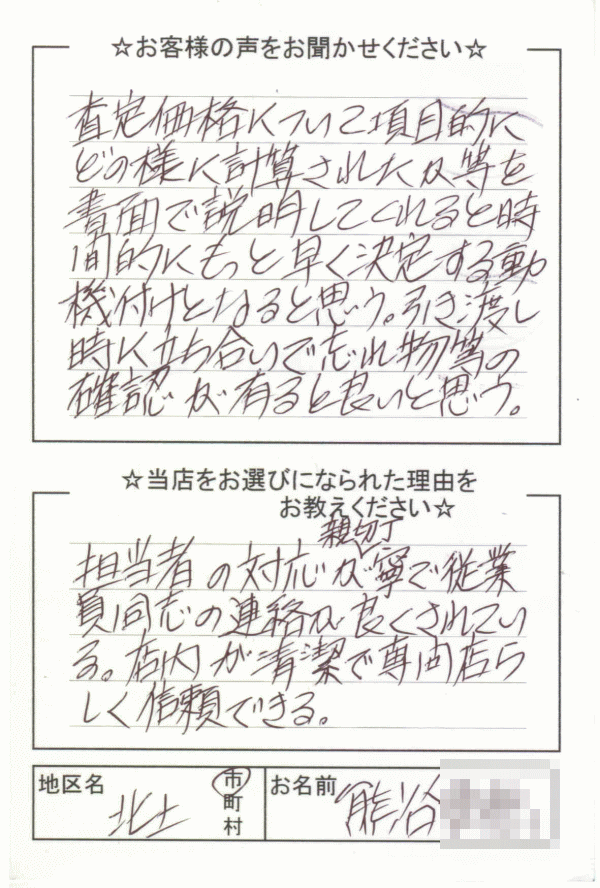 ☆お客様の声をお聞かせください☆
査定価格について項目的に
どの様に計算されたか等を
書面で説明してくれると時
間的にもっと早く決定する動
機付けとなると思う。引き渡し
時に立ち合いで忘れ物等の
確認が有ると良いと思う。
☆当店をお選びになられた理由を
お教えください☆
親切丁
担当者の対応が寧で従業
員同志の連絡が良くされてい
る。店内が清潔で専門店ら
しく信頼できる。
地区名 北上 市町村 お名前 熊谷